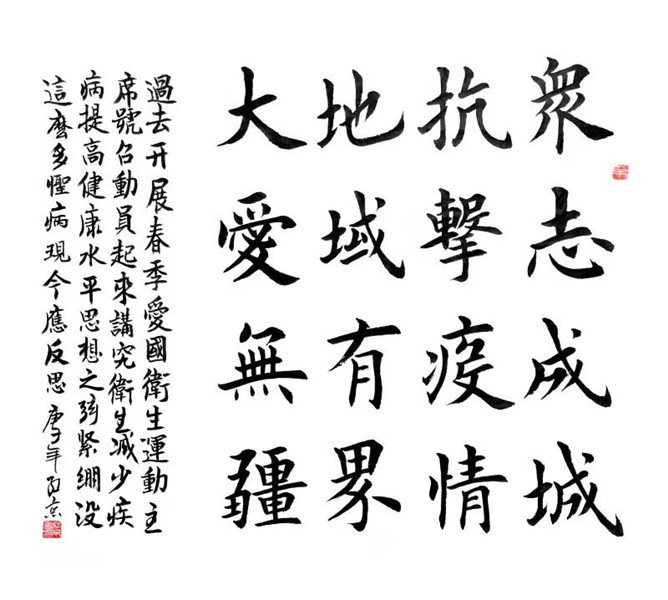 衆志成城
抗擊疫情
地域有界
大愛無疆
過去开展春季愛國衛生運動主
席號召動員起來講究衛生减少疾
病提高健康水平思想之弦緊綳没
這麽多慢病現今應反思 庚子年